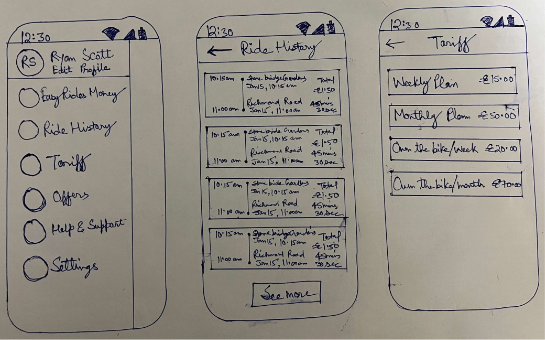 12:30
RS
Ryan Scott
Edit Profile
Easy Rides Money
Ride History
Tariff
Offers
Help & Support
Settings
12:30
← Ride History
10:15am
Jan 15, 10:15am
Total
£1.50
11:00am
Richmond Road
Jan 15, 11:00am
45mins
30sec
10:15am
Jan 15, 10:15am
Total
£1.50
11:00am
Richmond Road
Jan 15, 11:00am
45mins
30sec
10:15am
Jan 15, 10:15am
Total
£1.50
11:00am
Richmond Road
Jan 15, 11:00am
45mins
30sec
10:15am
Jan 15, 10:15am
Total
£1.50
11:00am
Richmond Road
Jan 15, 11:00am
45mins
30sec
See more
12:30
← Tariff
Weekly Plan £15.00
Monthly Plan £50.00
Own the bike/week £20.00
Own the bike/month